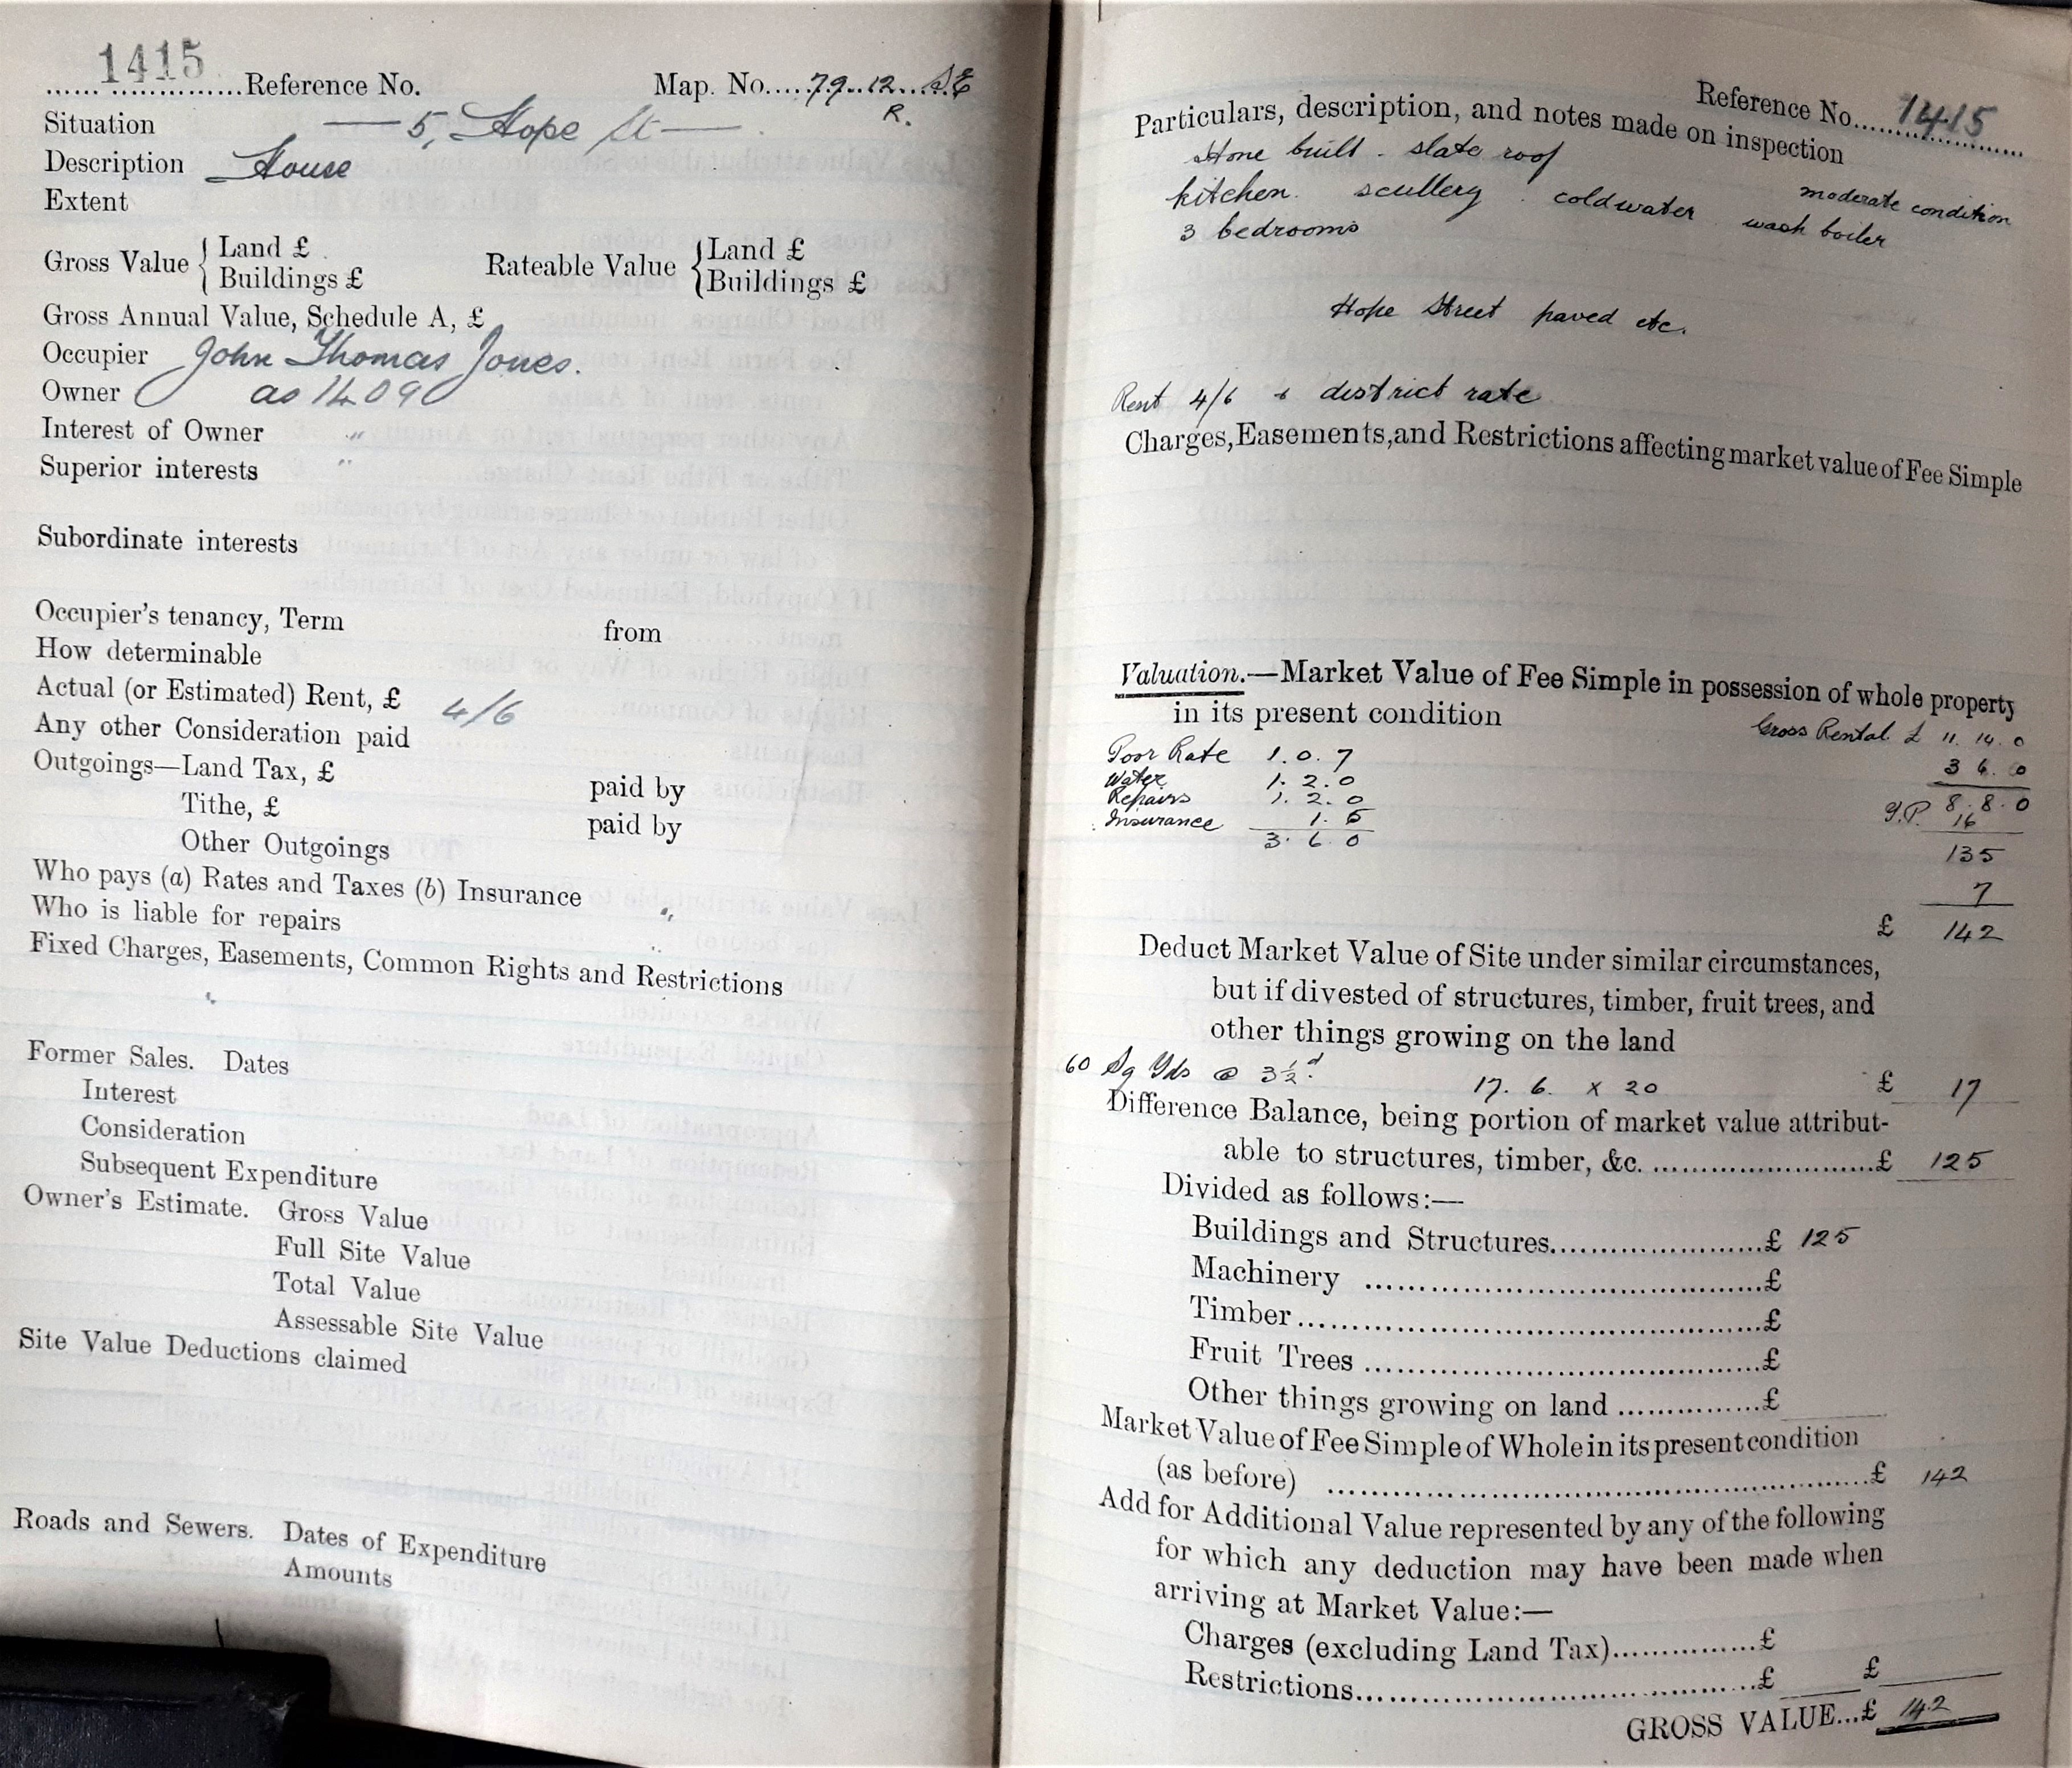 1415 Reference No. Map. No. 79..12..S.E
R.
Situation — 5, Hope St —
Description House
Extent
Gross Value { Land £ Rateable Value { Land £
Buildings £ Buildings £
Gross Annual Value, Schedule A, £
Occupier John Thomas Jones.
Owner as 1409
Interest of Owner "
Superior interests "
Subordinate interests
Occupier's tenancy, Term from
How determinable
Actual (or Estimated) Rent, £ 4/6
Any other Consideration paid
Outgoings—Land Tax, £ paid by
Tithe, £ paid by
Other Outgoings
Who pays (a) Rates and Taxes (b) Insurance "
Who is liable for repairs "
Fixed Charges, Easements, Common Rights and Restrictions
"
Former Sales. Dates
Interest
Consideration
Subsequent Expenditure
Owner's Estimate. Gross Value
Full Site Value
Total Value
Assessable Site Value
Site Value Deductions claimed
Roads and Sewers. Dates of Expenditure
Amounts
Reference No. 1415
Particulars, description, and notes made on inspection
Stone built - slate roof
moderate condition
kitchen. scullery. coldwater wash boiler
3 bedrooms
Hope Street paved etc.
Rent 4/6 + district rate
Charges, Easements, and Restrictions affecting market value of Fee Simple
Valuation.—Market Value of Fee Simple in possession of whole property
in its present condition
Gross Rental £ 11. 14. 0
Poor Rate 1. 0. 7
3 6. 0
Water 1. 2. 0
Repairs 1. 2. 0
Y.P. 8. 8. 0
Insurance 1. 5
16
3. 6. 0
135
7
£ 142
Deduct Market Value of Site under similar circumstances,
but if divested of structures, timber, fruit trees, and
other things growing on the land
60 Sq Yds @ 3½d. 17. 6. x 20 £ 17
Difference Balance, being portion of market value attribut-
able to structures, timber, &c. £ 125
Divided as follows:—
Buildings and Structures £ 125
Machinery £
Timber £
Fruit Trees £
Other things growing on land £
Market Value of Fee Simple of Whole in its present condition
(as before) £ 142
Add for Additional Value represented by any of the following
for which any deduction may have been made when
arriving at Market Value:—
Charges (excluding Land Tax) £
Restrictions £ £
GROSS VALUE...£ 142